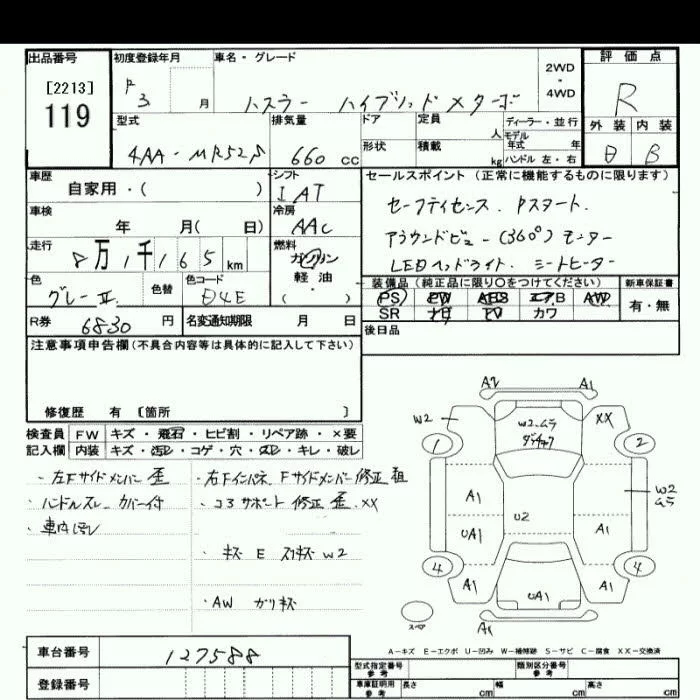 出品番号
[2213]
119
初度登録年月
R
3 月
車名・グレード
ハスラー ハイブリッド Xターボ
2WD
・
4WD
評価点
R
外装 内装
B B
型式
4AA-MR52S
排気量
660 cc
ドア
形状
定員 人
積載 kg
ディーラー・並行
モデル
年式 年
ハンドル 左・右
車歴
自家用・( )
シフト
IAT
車検
年 月( 日)
冷房
AAC
走行
8万1千165 km
燃料
ガソリン
軽・油
( )
色
グレーⅡ
色替
色コード
R券
6830 円
名変通知期限 月 日
セールスポイント (正常に機能するものに限ります)
セーフティセンス. Pスタート.
アラウンドビュー(360°)モニター
LEDヘッドライト. シートヒーター
装備品(純正品に限り○をつけてください)
PS PW ABS エアB AW
SR ナビ TV カワ
新車保証書
有・無
後日品
注意事項申告欄(不具合内容等は具体的に記入して下さい)
修復歴 有 [箇所 ]
検査員 FW キズ・飛石・ヒビ割・リペア跡・×要
記入欄 内装 キズ・汚レ・コゲ・穴・スレ・キレ・破レ
・左Fサイドメンバー 歪 ・右Fインパネ、Fサイドメンバー修正 粗
・ハンドルスレ. カバー付 ・コアサポート 修正 歪. XX
・車内汚レ
・キズ E スリキズ W2
・AW ガリキズ
A2 A1
W2 XX
W2.ムラ
1 2
A1 W2
ムラ
U2
UA1 A1
4 4
A1 UA1 A1
スペア A1
A-キズ E-エクボ U-凹み W-補修跡 S-サビ C-腐食 XX-交換済
車台番号
127588
登録番号
型式指定番号
参考
類別区分番号
参考
車庫証明用
参考
長さ cm 幅 cm 高さ cm